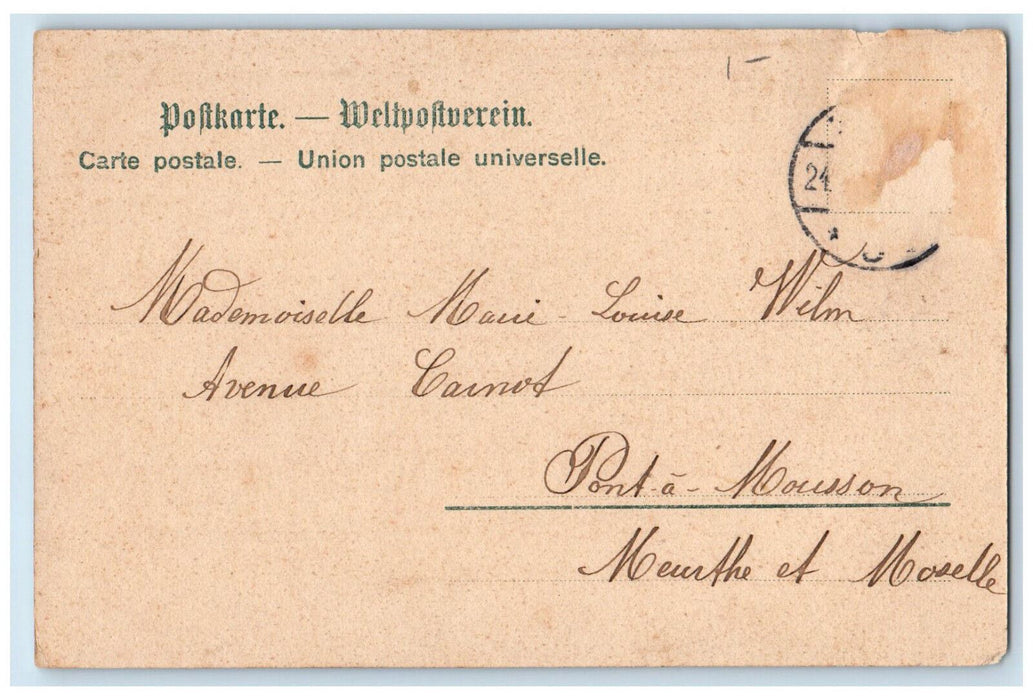 Postkarte. — Weltpostverein.
Carte postale. — Union postale universelle.
1 –
24
Mademoiselle Marie-Louise Wilm
Avenue Carnot
Pont-à-Mousson
Meurthe et Moselle